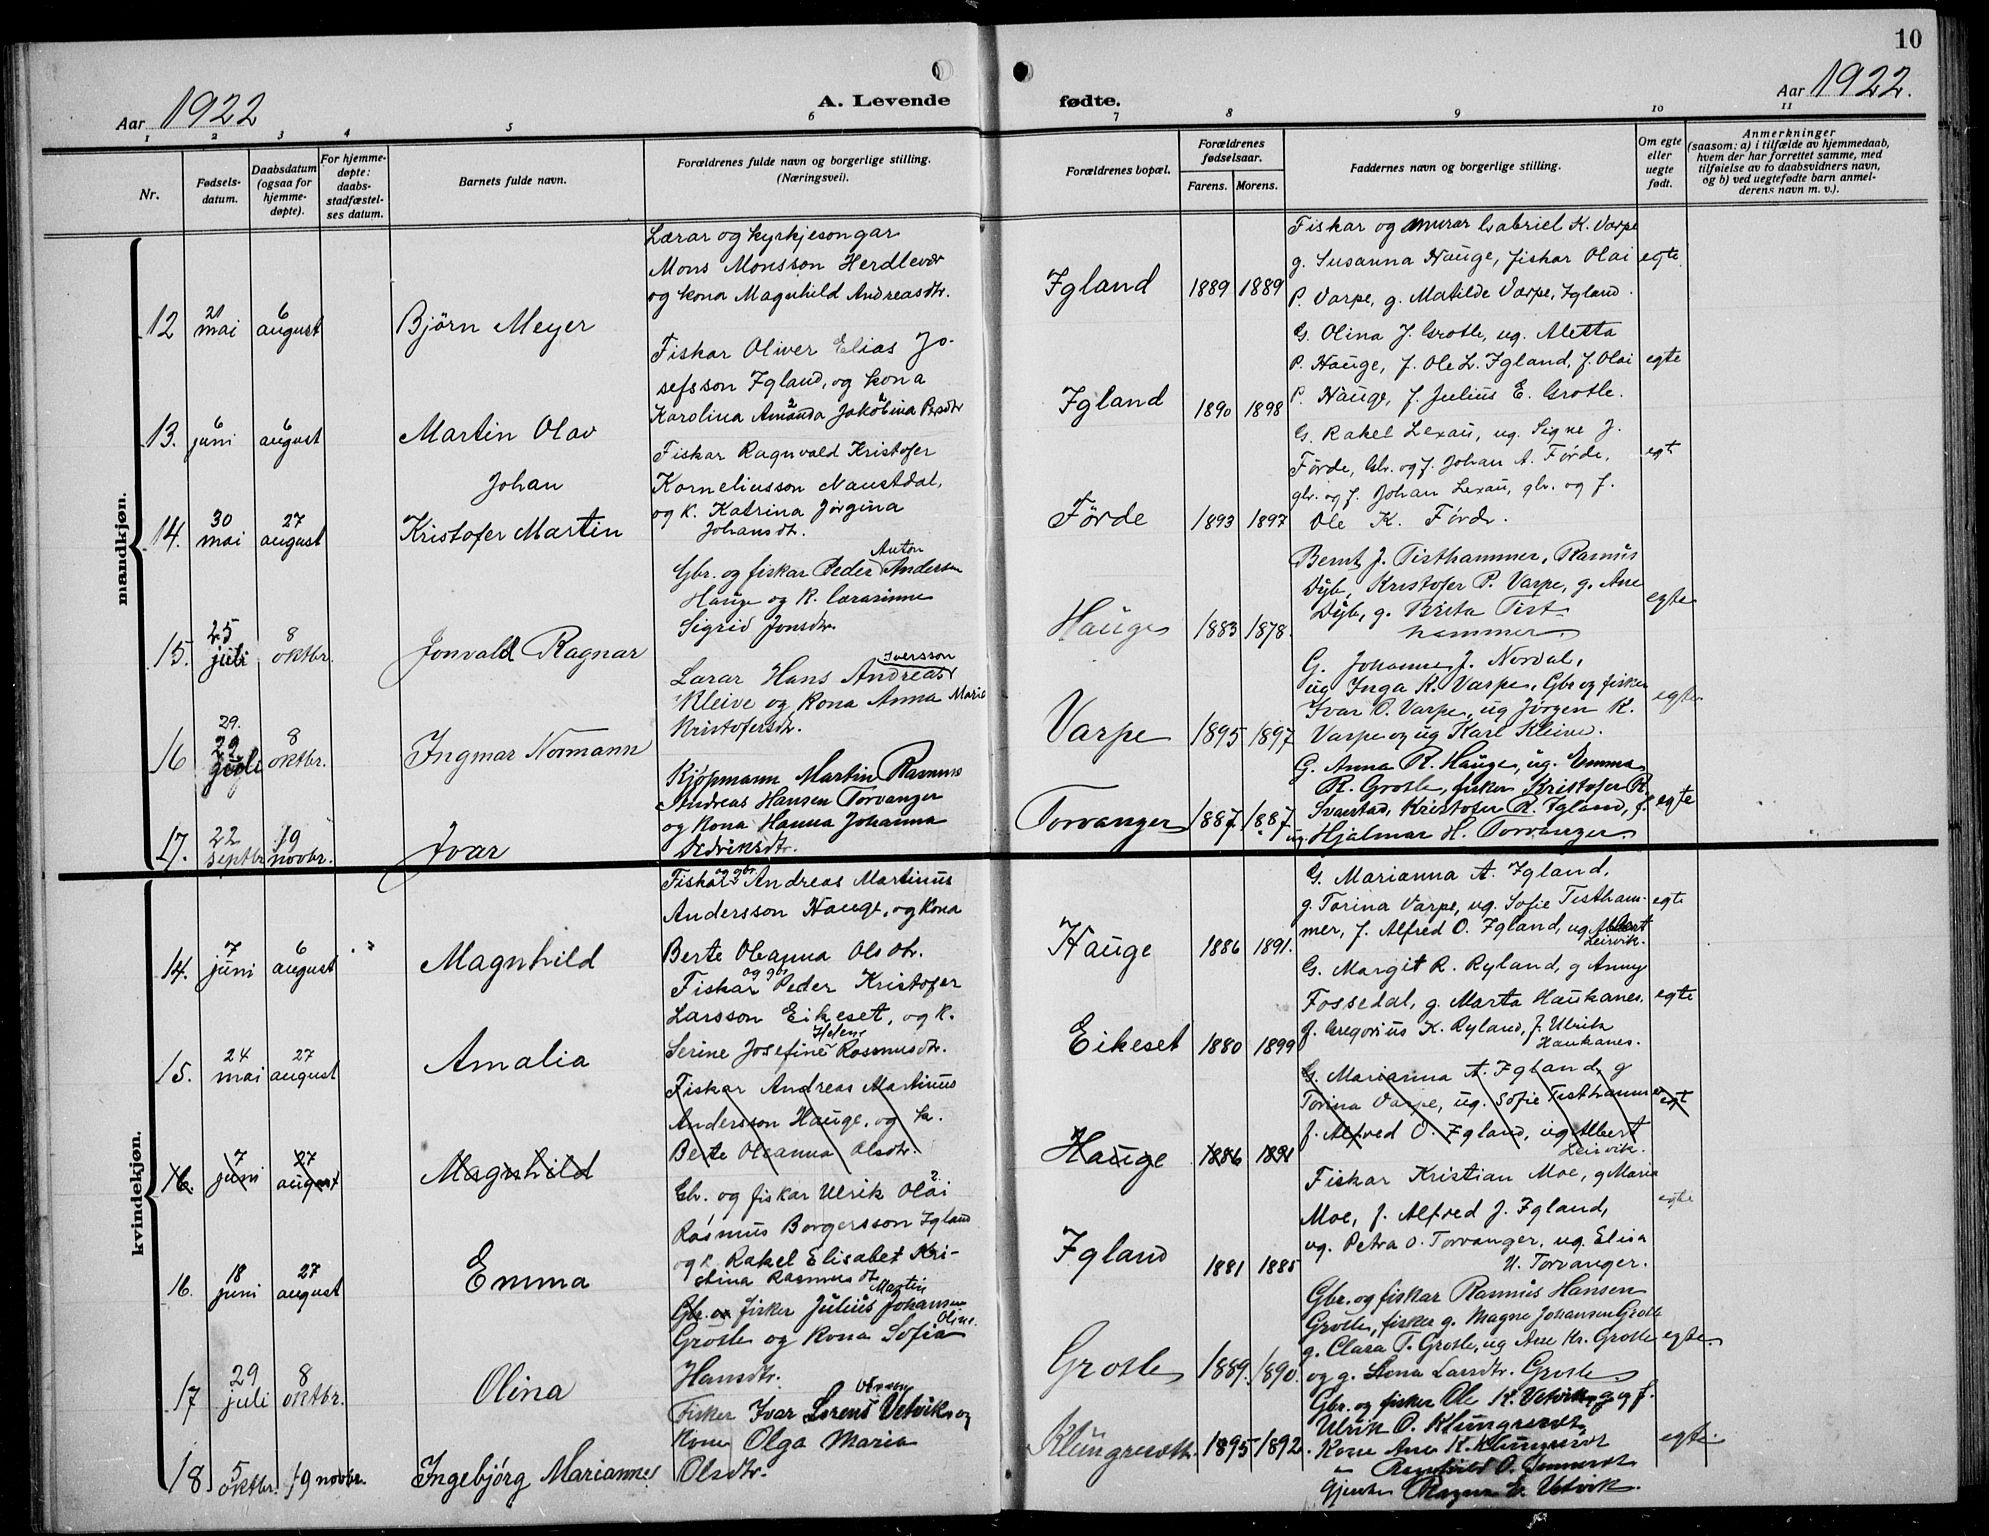 10
Aar 1922
A. Levende fødte.
Aar 1922.
1 2 3 4 5 6 7 8 9 10 11
Nr.
Fødsels-
datum.
Daabsdatum
(ogsaa for
hjemme-
døpte).
For hjemme-
døpte:
daabs-
stadfæstel-
ses datum.
Barnets fulde navn.
Forældrenes fulde navn og borgerlige stilling.
(Næringsvei).
Forældrenes bopæl.
Forældrenes
fødselsaar.
Farens. Morens.
Faddernes navn og borgerlige stilling.
Om egte
eller
uegte
født.
Anmerkninger
(saasom: a) i tilfælde av hjemmedaab,
hvem der har forrettet samme, med
tilføielse av to daabsvidners navn,
og b) ved uegtefødte barn anmel-
derens navn m. v.).
mandkjøn.
12 21 mai 6 august Bjørn Meyer
Lærar og kyrkjesongar
Mons Monsson Herdlevær
og kona Magnhild Andreasdtr.
Igland 1889 1889
Fiskar og murar Gabriel K. Varpe
g. Susanna Hauge, fiskar Olai
P. Varpe, g. Matilde Varpe, Igland.
egte.
13. 6 juni 6 august Martin Olav
Fiskar Oliver Elias Jo-
sefsson Igland, og kona
Karolina Amanda Jakobina Persdtr
Igland 1890 1898
G. Olina J. Grotle, ug. Aletta
P. Hauge, f. Ole L. Igland, f. Olai
P. Hauge, f. Julius E. Grotle.
egte
14. 30 mai 27 august Johan
Kristofer Martin
Fiskar Ragnvald Kristofer
Korneliusson Naustdal,
og k. Katrina Jørgina
Johansdtr.
Førde 1893 1897
G. Rakel Lexau, ug. Signe J.
Førde, Gbr. og f. Johan A. Førde,
gbr. og f. Johan Lexau, gbr. og f.
Ole K. Førde.
egt
15. 25 juli 8 oktbr. Jonvald Ragnar
Gbr. og fiskar Peder Anton Andersen
Hauge og k. lærarinne
Sigrid Jonsdtr.
Hauge 1883 1878.
Bernt J. Tisthammer, Rasmus
Dyb, Kristofer P. Varpe, g. Ane
Dyb, g. Brita Tist-
hammer.
egte
16 29. juli 8 oktbr. Ingmar Normann
Lærar Hans Andreas Iversson
Kleive og kona Anna Maria
Kristofersdtr.
Varpe 1895 1897
G. Johanne J. Nordal,
ug Inga K. Varpe, Gbr og fisker
Ivar O. Varpe, ug Jørgen K.
Varpe og ug Karl Kleive.
egte
17. 22 septbr 19 novbr. Ivar
Kjøpmann Martin Rasmus
Andreas Hansen Torvanger
og kona Hanna Johanna
Didriksdtr.
Torvanger 1887 1887
G. Anna R. Hauge, ug. Emma
R. Grotle, fisker Kristofer R.
Svarstad, Kristofer R. Igland, f.
ug. Hjalmar H. Torvanger
egte
kvindekjøn.
14. 7 juni 6 august Magnhild
Fiskar og gbr Andreas Martinus
Andersson Hauge, og kona
Berte Oleanna Olsdtr.
Hauge 1886 1891.
G. Marianna A. Igland,
g. Torina Varpe, ug. Sofie Tistham-
mer, f. Alfred O. Igland, ug Albert
Leirvik.
egte
15. 24 mai 27 august Amalia
Fiskar og gbr Peder Kristofer
Larsson Eikeset, og k.
Serine Josefine Helene Rasmusdtr.
Eikeset 1880 1899
G. Margit R. Ryland, g Anny
Fossedal, g. Marta Haukanes.
f. Gregorius K. Ryland, f. Ulrik
Haukanes.
egte
16. 7 juni 27 august Magnhild
Fiskar Andreas Martinus
Andersson Hauge, og k.
Berte Oleanna Olsdtr.
Hauge 1886 1891
G. Marianna A. Igland, g
Torina Varpe, ug. Sofie Tisthammer
f. Alfred O. Igland, ug Albert
Leirvik.
egt
16. 18 juni 27 august Emma
Gbr. og fiskar Ulrik Olai
Rasmus Borgersson Igland
og k. Rakel Elisabet Kri-
stina Rasmusdtr
Igland 1881 1885
Fiskar Kristian Moe, g Maria
Moe, f. Alfred J. Igland,
ug. Petra O. Torvanger, ug. Elisa
U. Torvanger.
egte
17 29 juli 8 oktbr. Olina
Gbr. og fisker Julius Martin Johansen
Grotle og kona Sofia Oline
Hansdtr.
Grotle 1889. 1890.
Gbr. og fiskar Rasmus Hansen
Grotle, fisker g. Magne Johansen Grotle
g. Clara T. Grotle, ug Ane Kr. Grotle
og g. Lona Larsdtr. Grotle.
egte.
18 5 oktbr. 19 novbr. Ingebjørg Marianne
Fisker Ivar Lorens Vetvik og
Kone Olga Maria
Olsdtr.
1895 1892.
Gbr. og fisker Ole K. Vetvik, g og f.
Ulrik O.
Kone Ane K.
Vetvik.
egte.